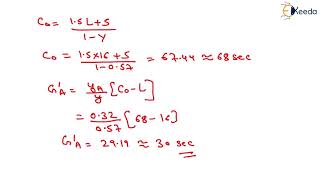 Ekeeda
C₀ = 1.5L+5 / 1-Y
C₀ = 1.5×16+5 / 1-0.57 = 67.44 ≈ 68 sec
G'A = yA / y [C₀-L]
= 0.32 / 0.57 [68-16]
G'A = 29.19 ≈ 30 sec